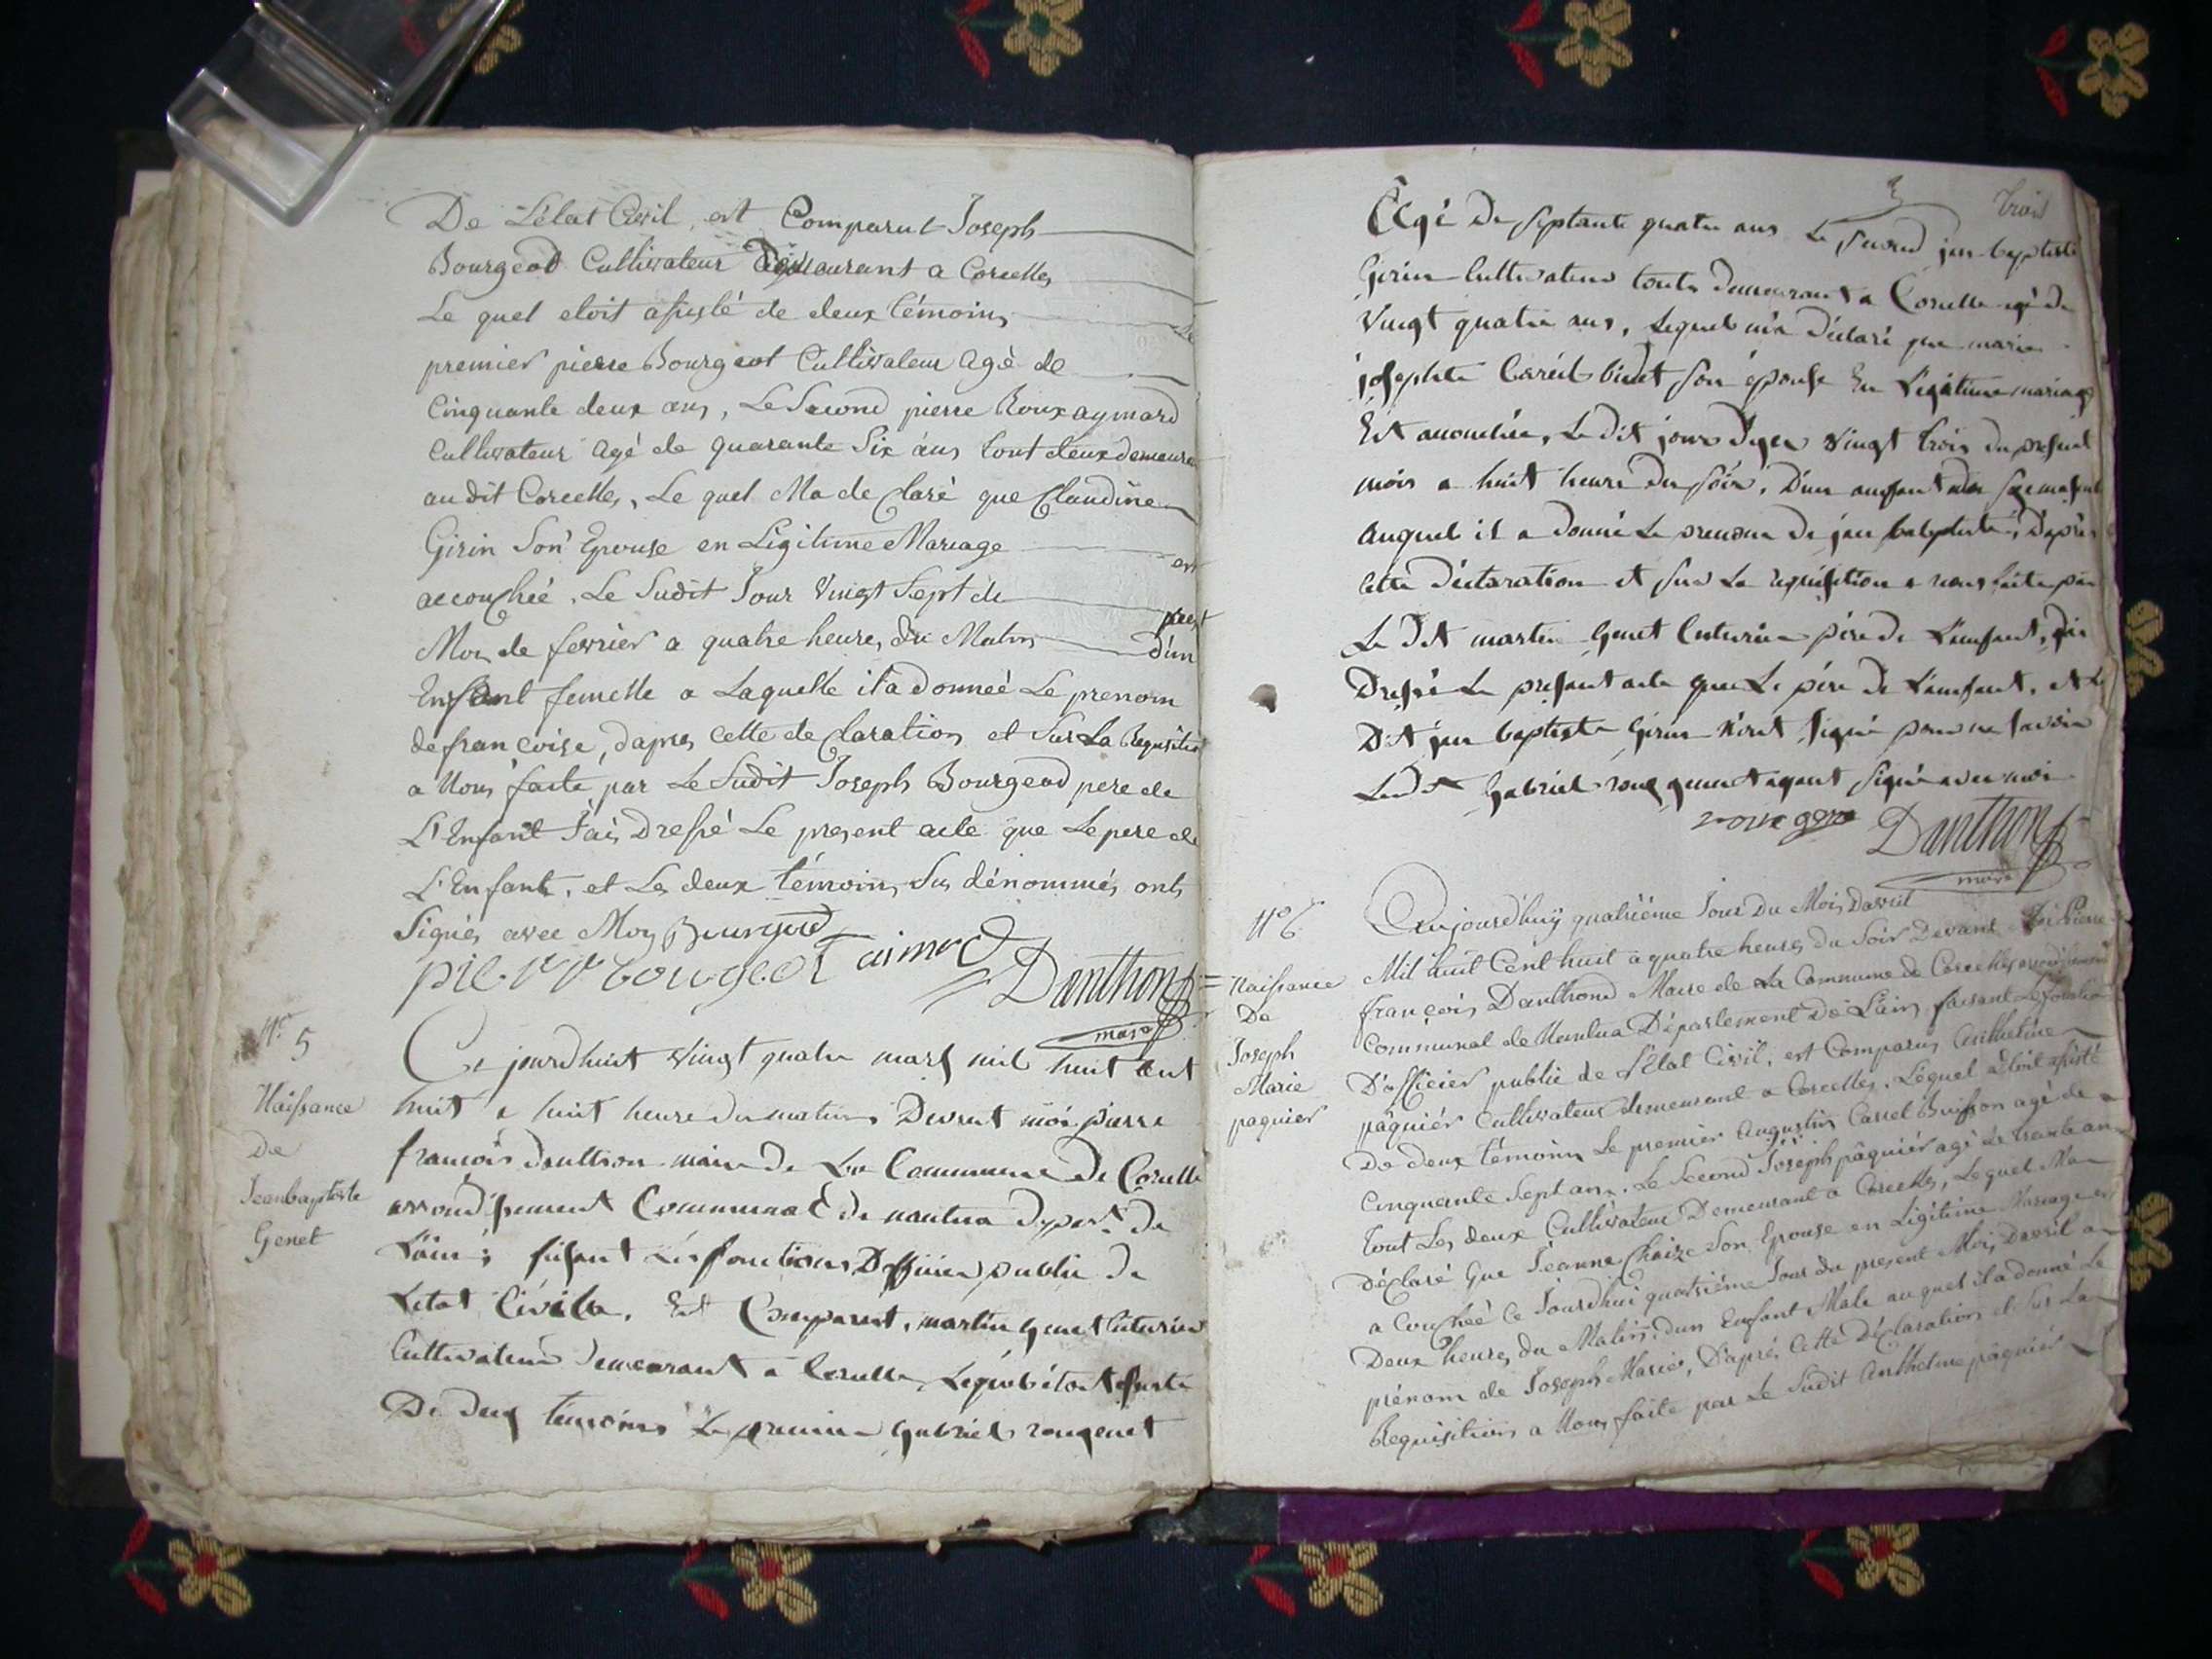 De L'état Civil, est Comparut Joseph
Bourgeod Cultivateur Demeurant a Corcelles
Le quel etoit assisté de deux témoins Le
premier pierre Bourgeot Cultivateur agé de
Cinquante deux ans, Le Second pierre Roux aymard
Cultivateur agé de quarante Six ans tout deux demeura
au dit Corcelles, Le quel Ma de Claré que Claudine
Girin Son Epouse en Légitime Mariage est
accouchée, Le Sudit Jour Vingt Sept de
Mois de fevrier a quatre heures du Matin d'un
Enfant femelle a Laquelle il a donneé Le prenom
de françoise, dapres cette de Claration et Sur La Requisition
a Nous faite par Le Sudit Joseph Bourgeod pere de
L'Enfant J'ais Dressé Le present acte que Le pere de
L'Enfant, et Les deux témoins Sus dénommés onts
Signés avec Moy Bourgeod
pierre bourgeot aimard Danthon
maire
N° 5
Naissance
De
Jean baptiste
Genet
Ce jourd'huit vingt quatre mars mil huit cent
huit a huit heure du matin Devant moi pierre
francois danthon maire de La Commune de Corcelle
arrondissement Communal de nantua depart. de
L'ain; fesant Les fonctions D'officier public de
Letat Civile. Est Comparut, martin genet Couturier
Cultivateur demeurant a Corcelle, Lequel étoit assisté
De deux témoins Le premier gabriel rougenet
3
trois
Agé De septante quatre ans Le second jean baptiste
Girin Cultivateur touts demeurant a Corcelle agé de
Vingt quatre ans, Lequel m'a déclaré que marie
josephte Carril binet son épouse En Légitime mariage
Est accouchée, Le dit jour d'yer vingt trois du présent
mois a huit heure du soir, D'un anfant du sexe masculin
auquel il a donné Le prenom de jean baptiste, D'après
cette déclaration et sur La requisition a nous faite par
Le Dit martin genet Couturier père de L'anfant, j'ai
Dressé Le présent acte que Le père de L'anfant, et Le
Dit jean baptiste Girin n'ont signé pour ne savoir
Le Dit Gabriel rougenet ayant signé avec moi
rouxgene Danthon
maire
N° 6
Naissance
De
Joseph
Marie
paquier
Aujourd'huy quatrième Jour Du Mois Davril
Mil huit Cent huit a quatre heures du Soir Devant Moi Pierre
françois Danthond Maire de La Commune de Corcelles arrondissement
Communal de Nantua Département De L'ain faisant Les fonctions
D'officier public de L'état Civil, est Comparus Anthelme
pâquiér Cultivateur demeurant a Corcelles, Lequel étoit assisté
De deux témoins Le premier Augustin Carrel Buisson agé de
Cinquante Sept ans. Le Second Joseph pâquiér agé de trante ans
tout Les deux Cultivateur Demeurant a Corcelles, Lequel Ma
Déclaré Que Jéanne Chaize Son Epouse en Légitime Mariage est
a Couchéé Ce Jourd'hui quatrième Jour du present Mois Davril a
Deux heures du Matin, d'un Enfant Male auquel il a donné Le
prénom de Joseph Marie, D'aprés Cette Déclaration et Sur La
Requisition a Nous faite par Le Sudit Anthelme pâquiér